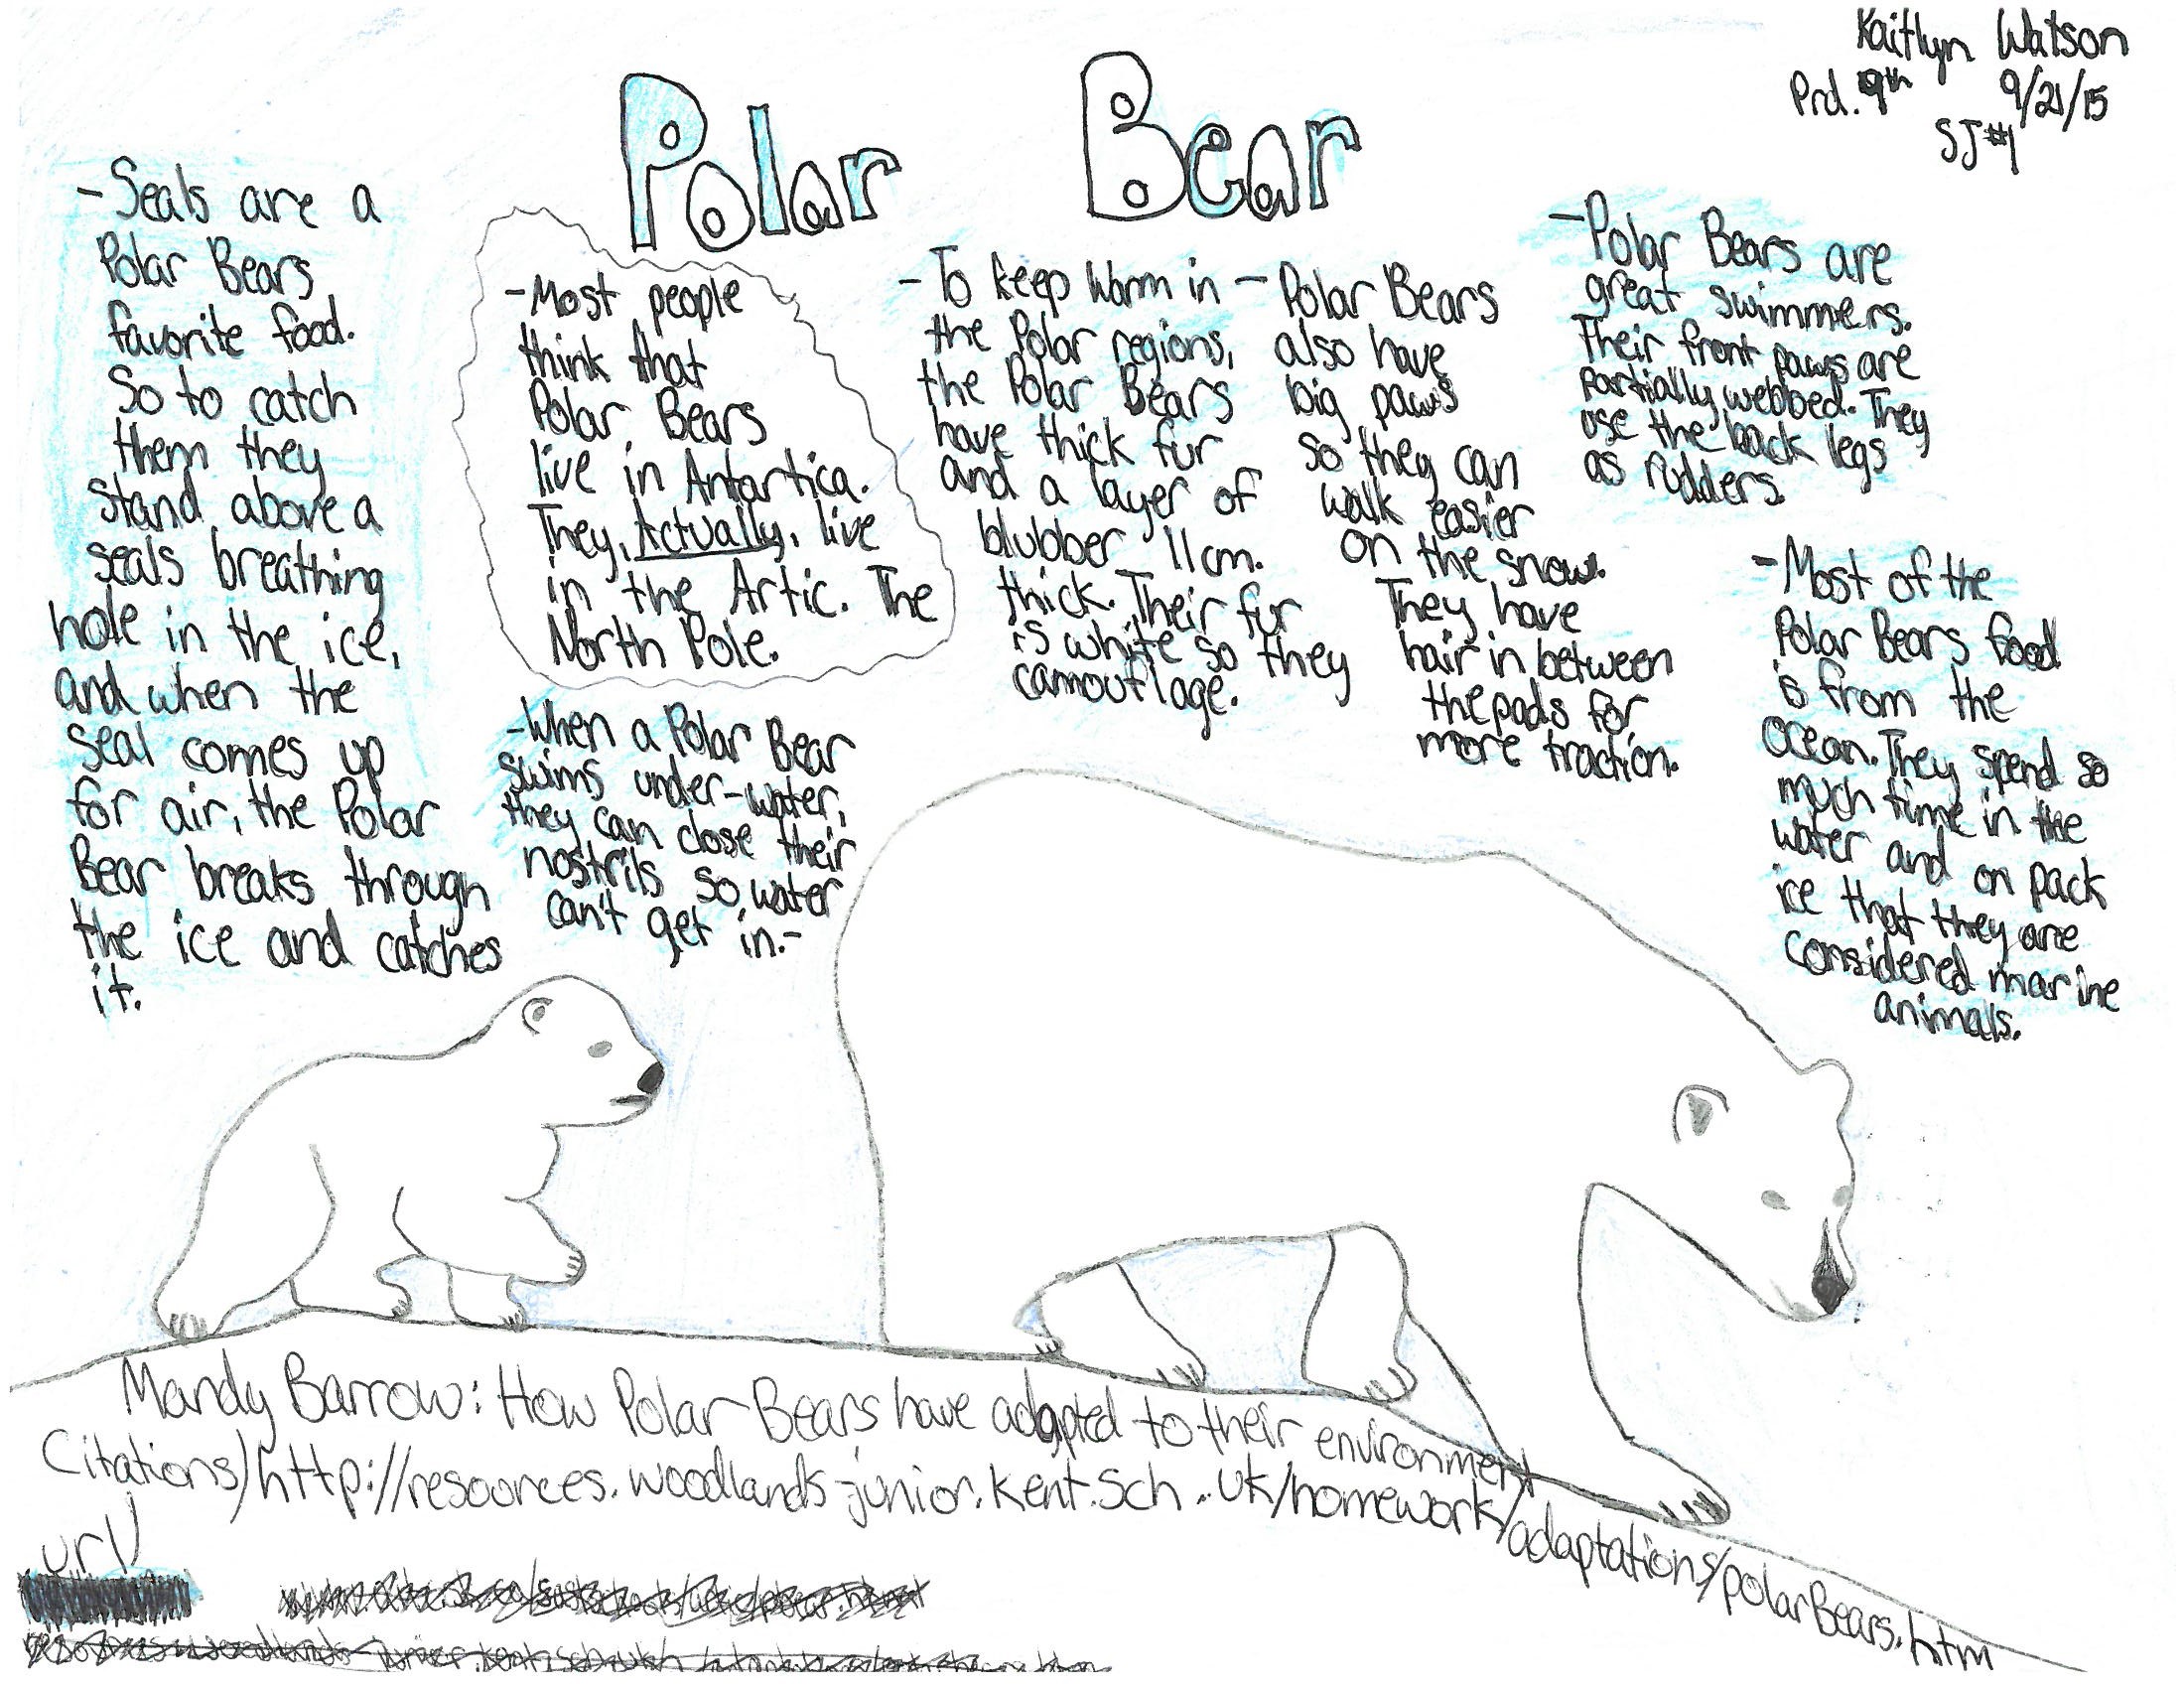 Kaitlyn Watson
Prd. 9th 9/21/15
SJ #1
Polar Bear
-Seals are a
Polar Bears
favorite food.
So to catch
them they
stand above a
seals breathing
hole in the ice,
and when the
seal comes up
for air, the Polar
Bear breaks through
the ice and catches
it.
-Most people
think that
Polar Bears
live in Antartica.
They Actually, live
in the Artic. The
North Pole.
-When a Polar Bear
swims under-water,
they can close their
nostrils so water
can't get in.-
-To keep warm in
the Polar regions,
the Polar Bears
have thick fur
and a layer of
blubber 11cm.
thick. Their fur
is white so they
camouflage.
-Polar Bears
also have
big paws
so they can
walk easier
on the snow.
They have
hair in between
the pads for
more traction.
-Polar Bears are
great swimmers.
Their front paws are
partially webbed. They
use the back legs
as rudders.
-Most of the
Polar Bears food
is from the
Ocean. They spend so
much time in the
water and on pack
ice that they are
considered marine
animals.
Mandy Barrow: How Polar Bears have adapted to their environment
Citations/http://resources.woodlands-junior.kent.sch..uk/homework/adaptations/polarBears.htm
url/